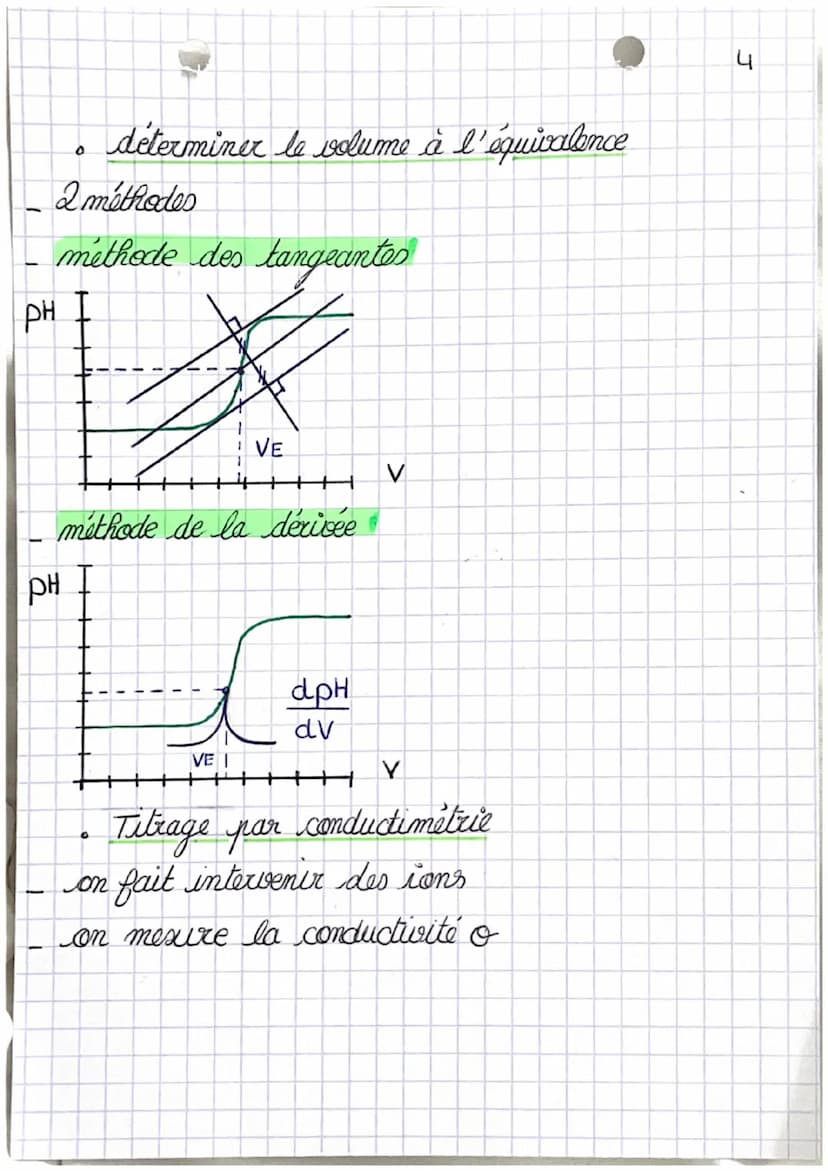 4
• déterminer le volume à l'équivalence
- 2 méthodes
- méthode des tangeantes
pH
VE
V
- méthode de la dérivée
pH
dpH
dV
VE
V
• Titrage par conductimétrie
- on fait intervenir des ions
- on mesure la conductivité σ